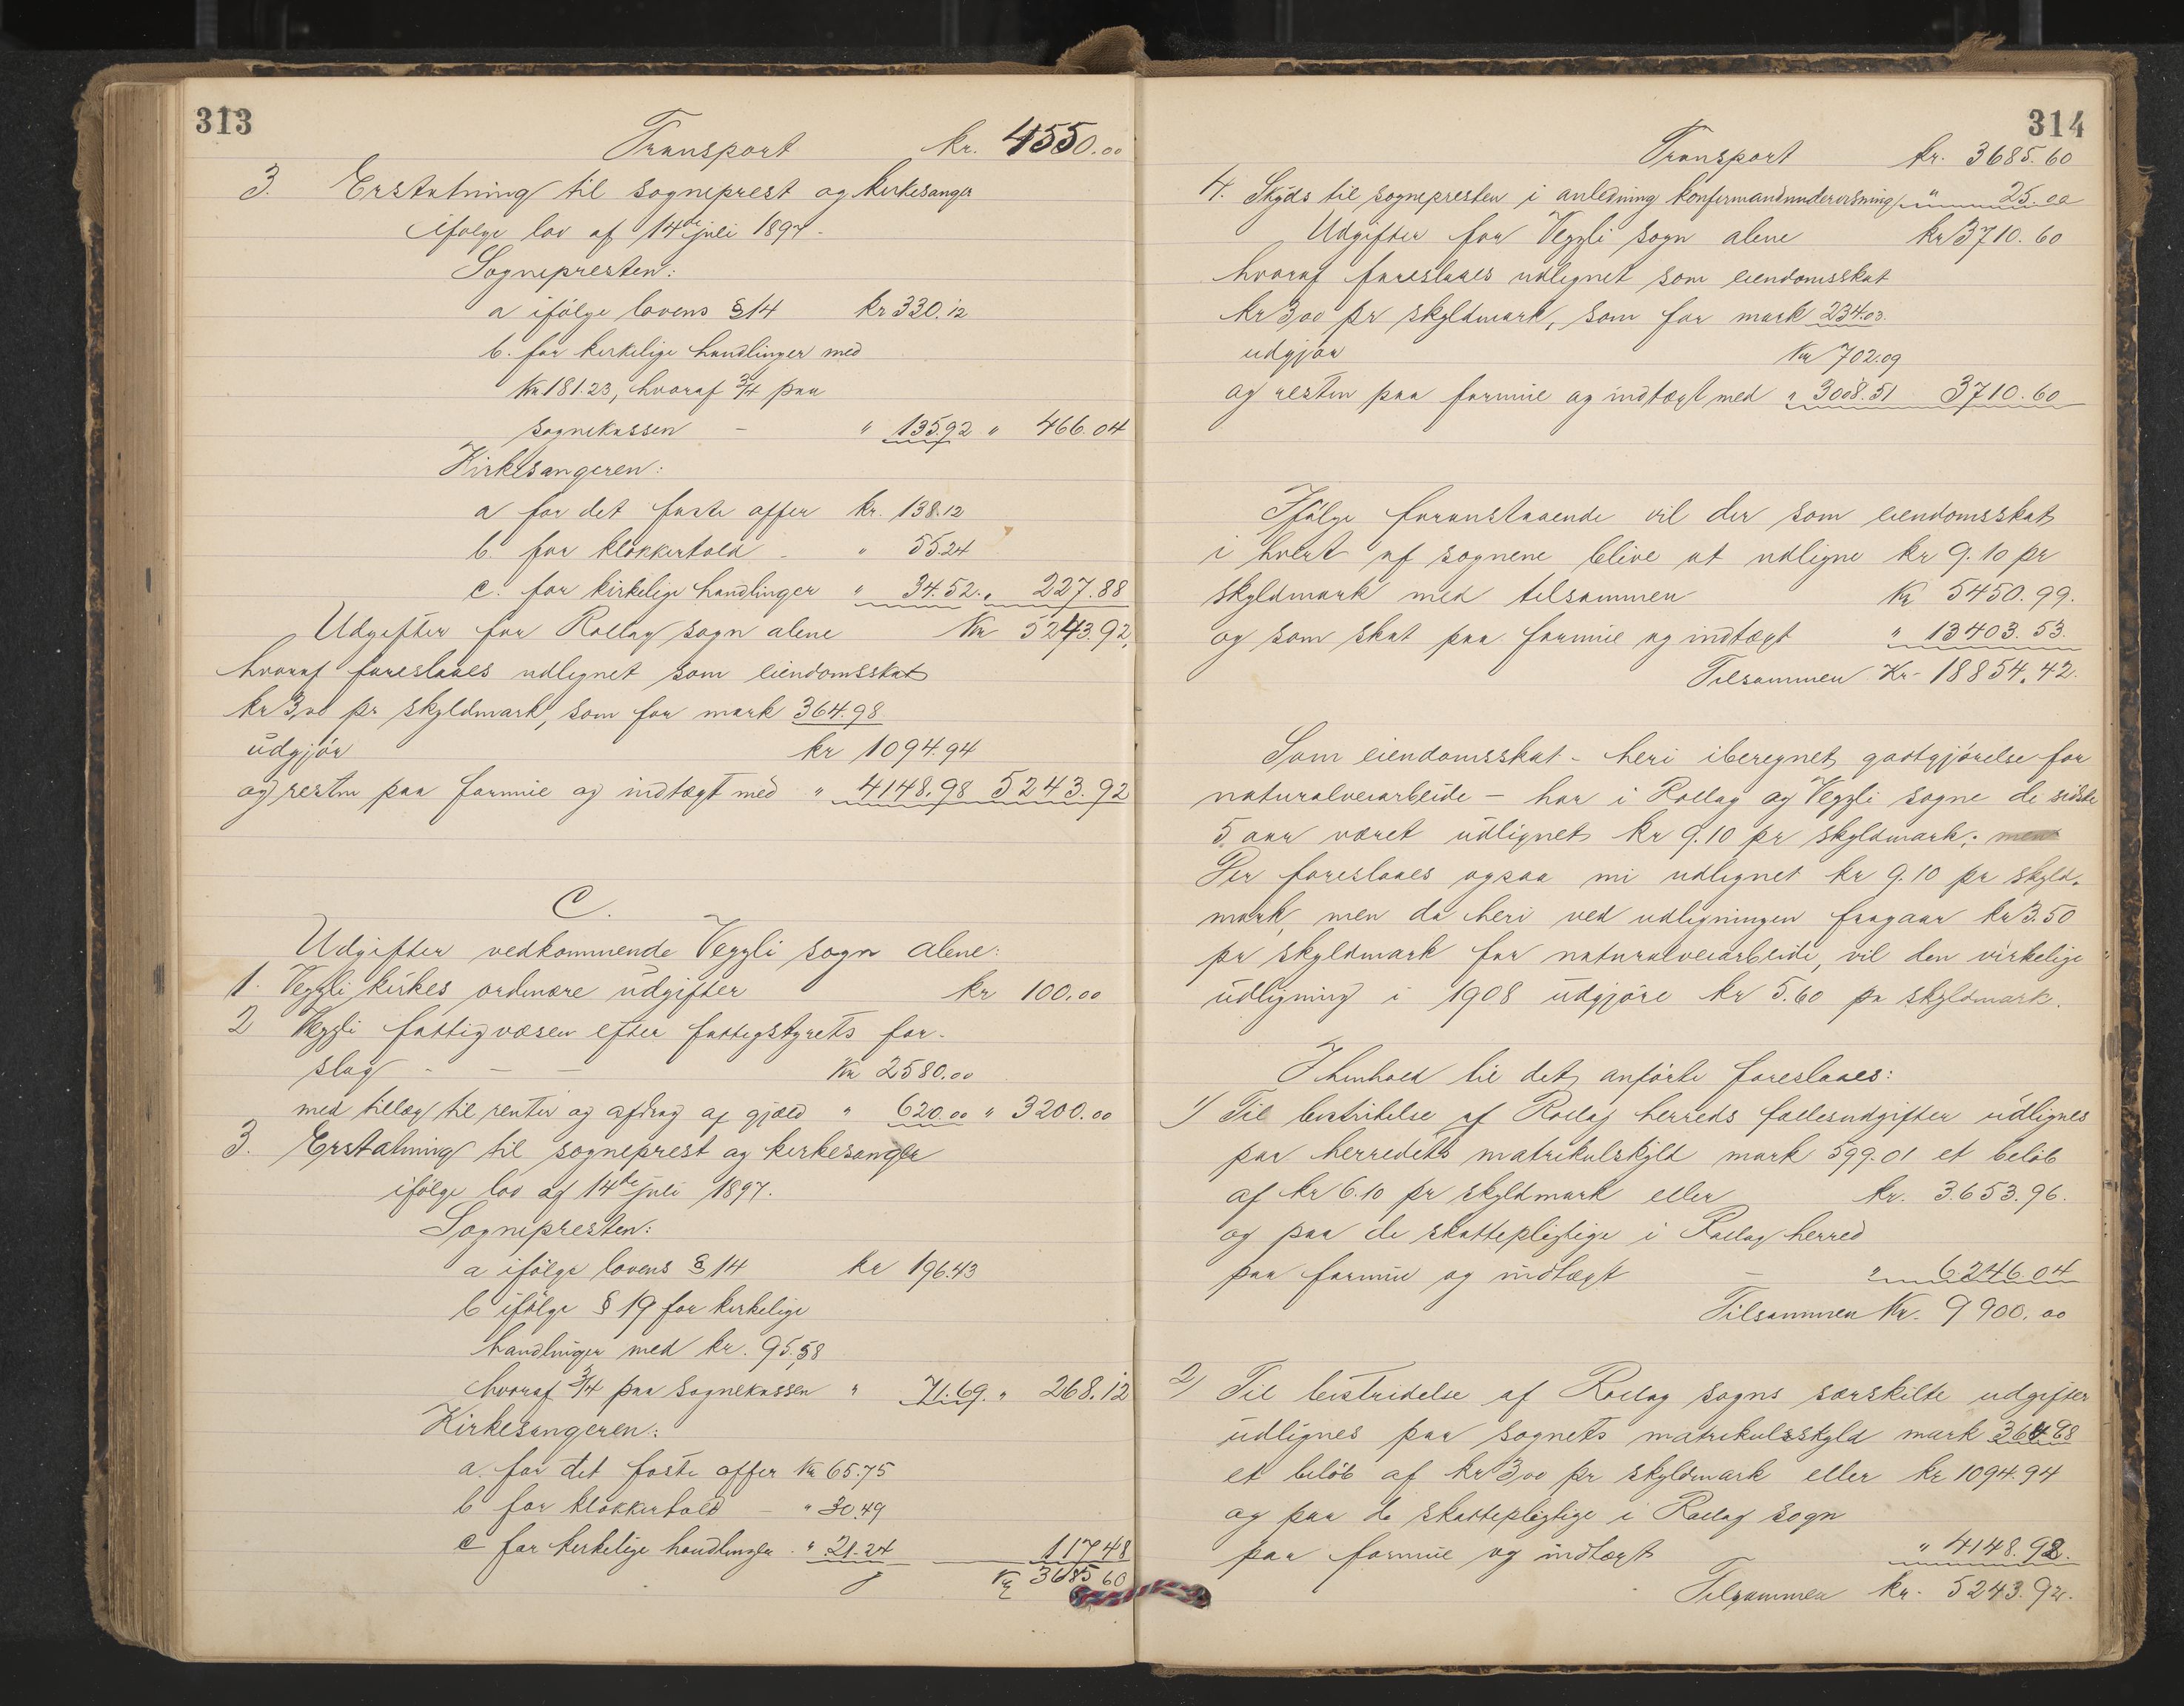 313
Transport kr. 4550.00
3. Erstatning til sogneprest og kirkesanger
ifølge lov af 14de juli 1897.
Sognepresten:
a ifølge lovens § 14 kr 330.12
b. for kirkelige handlinger med
Kr 181.23, hvoraf 3/4 paa
sognekassen - " 135.92 " 466.04
Kirkesangeren:
a for det faste offer kr. 138.12
b. for klokkertold - " 55.24
c. for kirkelige handlinger " 34.52. " 227.88
Udgifter for Rollag sogn alene Kr 5243.92.
hvoraf foreslaaes udlignet som eiendomsskat
kr 3,00 pr skyldmark, som for mark 364.98
udgjør kr 1094.94
og resten paa formue og indtægt med " 4148.98 5243.92
C.
Udgifter vedkommende Veggli sogn alene:
1. Veggli kirkes ordinære udgifter kr 100.00
2 Veggli fattigvæsen efter fattigstyrets for-
slag - - - Kr 2580.00
med tillæg til renter og afdrag af gjæld " 620.00 " 3200.00
3. Erstatning til sogneprest og kirkesanger
ifølge lov af 14de juli 1897.
Sognepresten:
a ifølge lovens § 14 kr 196.43
b ifølge § 19 for kirkelige
handlinger med kr. 95.58
hvoraf 3/4 paa sognekassen " 71.69. " 268.12
Kirkesangeren:
a. for det faste offer Kr 65.75
b for klokkertold - " 30.49
c for kirkelige handlinger . " 21.24 117 48
Kr 3685 60
314
Transport kr. 3685.60
4. Skyds til sognepresten i anledning konfirmandundervisning " 25.00
Udgifter for Veggli sogn alene kr 3710.60
hvoraf foreslaaes udlignet som eiendomsskat
kr 3,00 pr skyldmark, som for mark 234.03.
udgjør Kr 702.09
og resten paa formue og indtægt med " 3008.51 3710.60
Ifølge foranstaaende vil der som eiendomsskat
i hvert af sognene blive at udligne kr 9.10 pr
skyldmark med tilsammen Kr 5450.99.
og som skat paa formue og indtægt " 13403.53.
Tilsammen Kr- 18854.42.
Som eiendomsskat - heri iberegnet godtgjørelse for
naturalveiarbeide - har i Rollag og Veggli sogne de sidste
5 aar været udlignet kr 9.10 pr skyldmark; men
Der foreslaaes ogsaa nu udlignet kr 9.10 pr skyld-
mark, men da heri ved udligningen fragaar kr 3.50
pr skyldmark for naturalveiarbeide, vil den virkelige
udligning i 1908 udgjøre kr 5.60 pr skyldmark.
I henhold til det anførte foreslaaes:
1) Til bestridelse af Rollag herreds fællesudgifter udlignes
paa herredets matrikulskyld mark 599.01 et beløb
af kr 6.10 pr skyldmark eller kr. 3.653.96.
og paa de skattepligtige i Rollag herred
paa formue og indtægt - " 6.246.04
Tilsammen Kr. 9900.00
2) Til bestridelse af Rollag sogns særskilte udgifter
udlignes paa sognets matrikulsskyld mark 364.98
et beløb af kr 3,00 pr skyldmark eller kr 1094.94
og paa de skattepligtige i Rollag sogn
paa formue og indtægt " 4148.98.
Tilsammen kr. 5243.92.